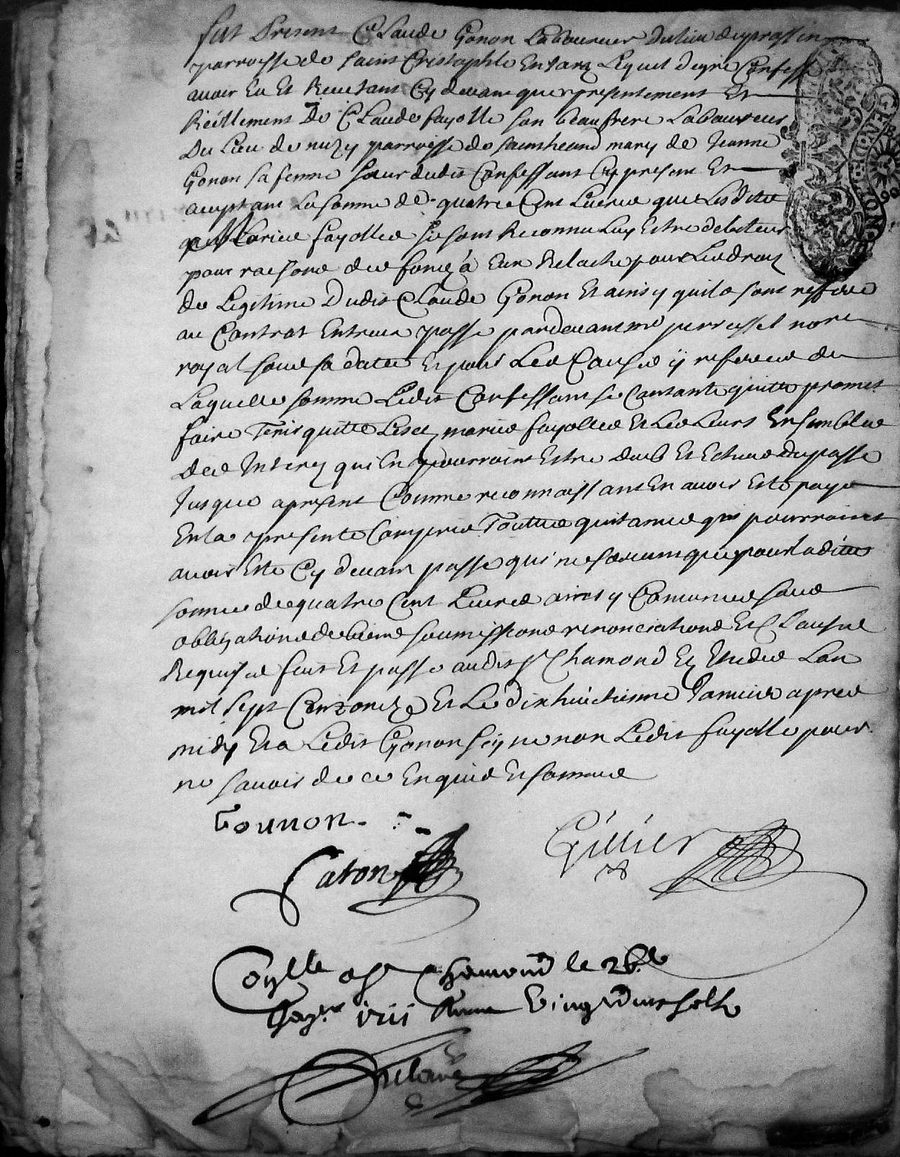 fut Present Claude Gonon Laboureur du lieu du prassin
parroisse de saint Cristophle En Jarz Lequel de gre Confesse
avoir Eu et Receu tant Cy devant que presentement Et
Reellement De Claude fayolle son beaufrere Laboureur
Du Lieu de nuzy parroisse de sainheand mary de Jeanne
Gonon sa femme soeur dudit Confessant Cy present Et
aceptant La somme de quatre Cent Livres que Lesdits
maries fayolle se sont Reconnu Luy Estre debiteurs
pour raisons des fons à Eux Relaché pour Les droiz
de Legitime Dudit Claude Gonon Et ainsy quils sont referes
au Contrat Entreux passé pardevant me perrasset nore
royal sous sa datte Et pour Les Causes y referes de
Laquelle somme Ledit Confessant se Contante quitte promet
faire Tenir quitte Lesd maries fayolles Et Les Leurs Ensemble
des Interez qui En pourroint Estre dub Et Echus du passé
Jusque apresent Comme reconnaissant En avoir Esté payé
En la presente Comprise Touttes quitances qui pourroint
avoir Esté Cy devant passé qui ne seront que pour laditte
somme de quatre Cent Livres ainsy Convenu sous
obligations de biens soumissions renonciations Et Clauses
Requise fait Et passé audit St Chamond Es Etudes Lan
mil sept Cent onze Et Le dixhuitieme Janvier apres
midy Et a Ledit Gonon signé non Ledit fayolle pour
ne savoir de ce Enquis Et sommé
Gounon
Caton
Gillier
Conlle a St Chamond le 26e
Janr 1711 Receu Vingt deux sols
GEN LYON